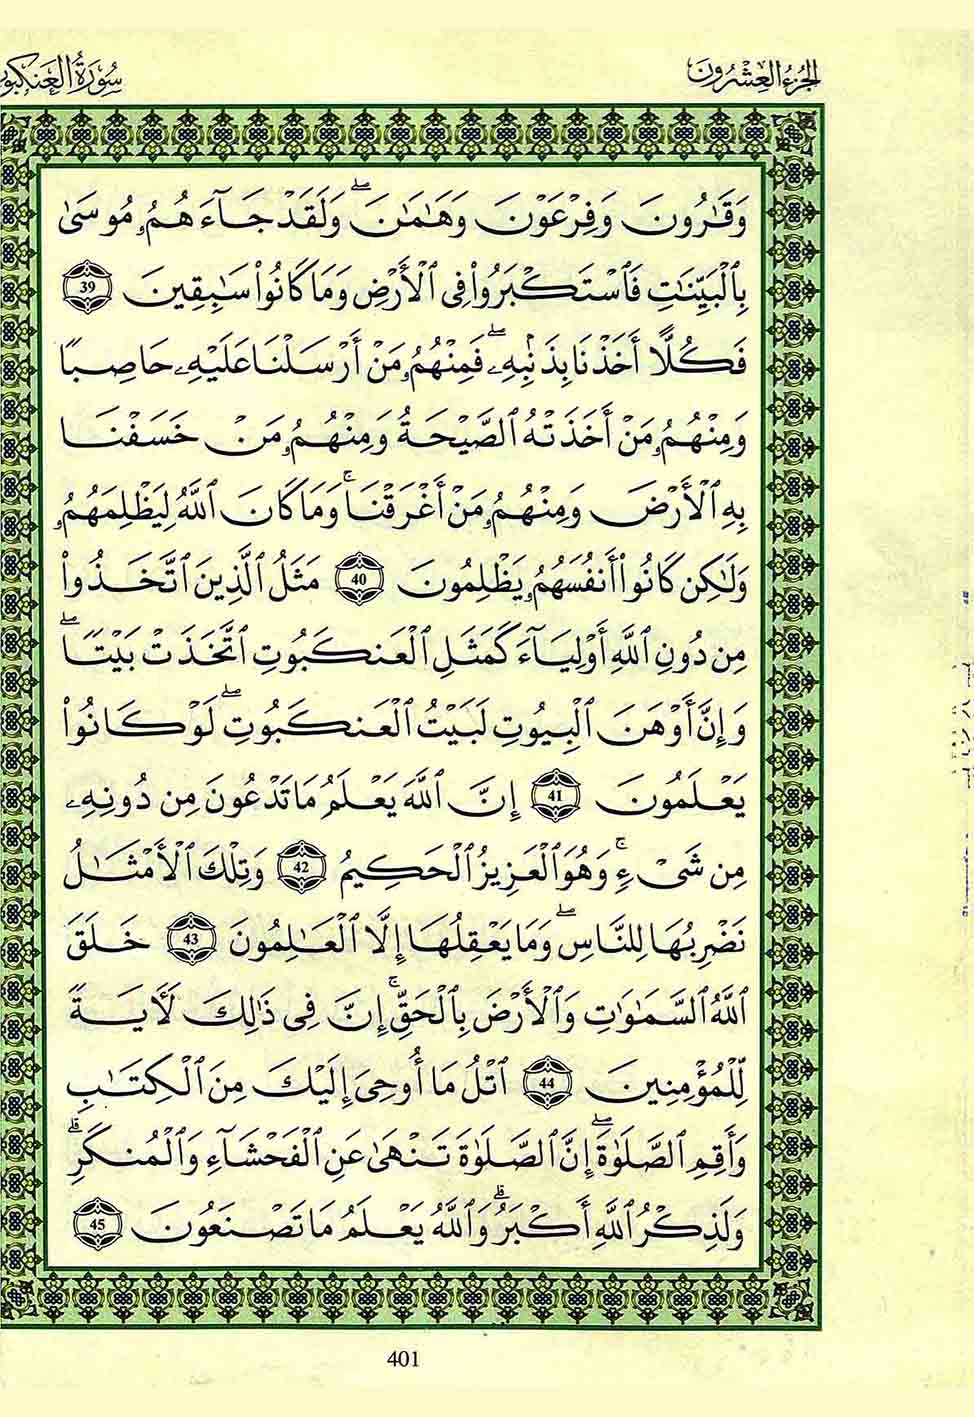 الجزء العشرون
سورة العنكبو
وَقَٰرُونَ وَفِرْعَوْنَ وَهَٰمَٰنَ ۖ وَلَقَدْ جَآءَهُمُۥ مُوسَىٰ
بِالْبَيِّنَٰتِ فَاسْتَكْبَرُوا۟ فِى الْأَرْضِ وَمَا كَانُوا۟ سَٰبِقِينَ 39
فَكُلًّا أَخَذْنَا بِذَنۢبِهِۦ ۖ فَمِنْهُمُۥ مَنْ أَرْسَلْنَا عَلَيْهِۦ حَاصِبًا
وَمِنْهُمُۥ مَنْ أَخَذَتْهُ الصَّيْحَةُ وَمِنْهُمُۥ مَنْ خَسَفْنَا
بِهِ الْأَرْضَ وَمِنْهُمُۥ مَنْ أَغْرَقْنَا ۚ وَمَا كَانَ اللَّهُ لِيَظْلِمَهُمُۥ
وَلَٰكِن كَانُوا۟ أَنفُسَهُمُۥ يَظْلِمُونَ 40 مَثَلُ الَّذِينَ اتَّخَذُوا۟
مِن دُونِ اللَّهِ أَوْلِيَآءَ كَمَثَلِ الْعَنكَبُوتِ اتَّخَذَتْ بَيْتًا ۖ
وَإِنَّ أَوْهَنَ الْبِيُوتِ لَبَيْتُ الْعَنكَبُوتِ ۖ لَوْ كَانُوا۟
يَعْلَمُونَ 41 إِنَّ اللَّهَ يَعْلَمُ مَا تَدْعُونَ مِن دُونِهِۦ
مِن شَىْءٍ ۚ وَهُوَ الْعَزِيزُ الْحَكِيمُ 42 وَتِلْكَ الْأَمْثَٰلُ
نَضْرِبُهَا لِلنَّاسِ ۖ وَمَا يَعْقِلُهَا إِلَّا الْعَٰلِمُونَ 43 خَلَقَ
اللَّهُ السَّمَٰوَٰتِ وَالْأَرْضَ بِالْحَقِّ ۚ إِنَّ فِى ذَٰلِكَ لَآيَةً
لِّلْمُؤْمِنِينَ 44 اتْلُ مَا أُوحِىَ إِلَيْكَ مِنَ الْكِتَٰبِ
وَأَقِمِ الصَّلَوٰةَ ۖ إِنَّ الصَّلَوٰةَ تَنْهَىٰ عَنِ الْفَحْشَآءِ وَالْمُنكَرِ ۗ
وَلَذِكْرُ اللَّهِ أَكْبَرُ ۗ وَاللَّهُ يَعْلَمُ مَا تَصْنَعُونَ 45
401